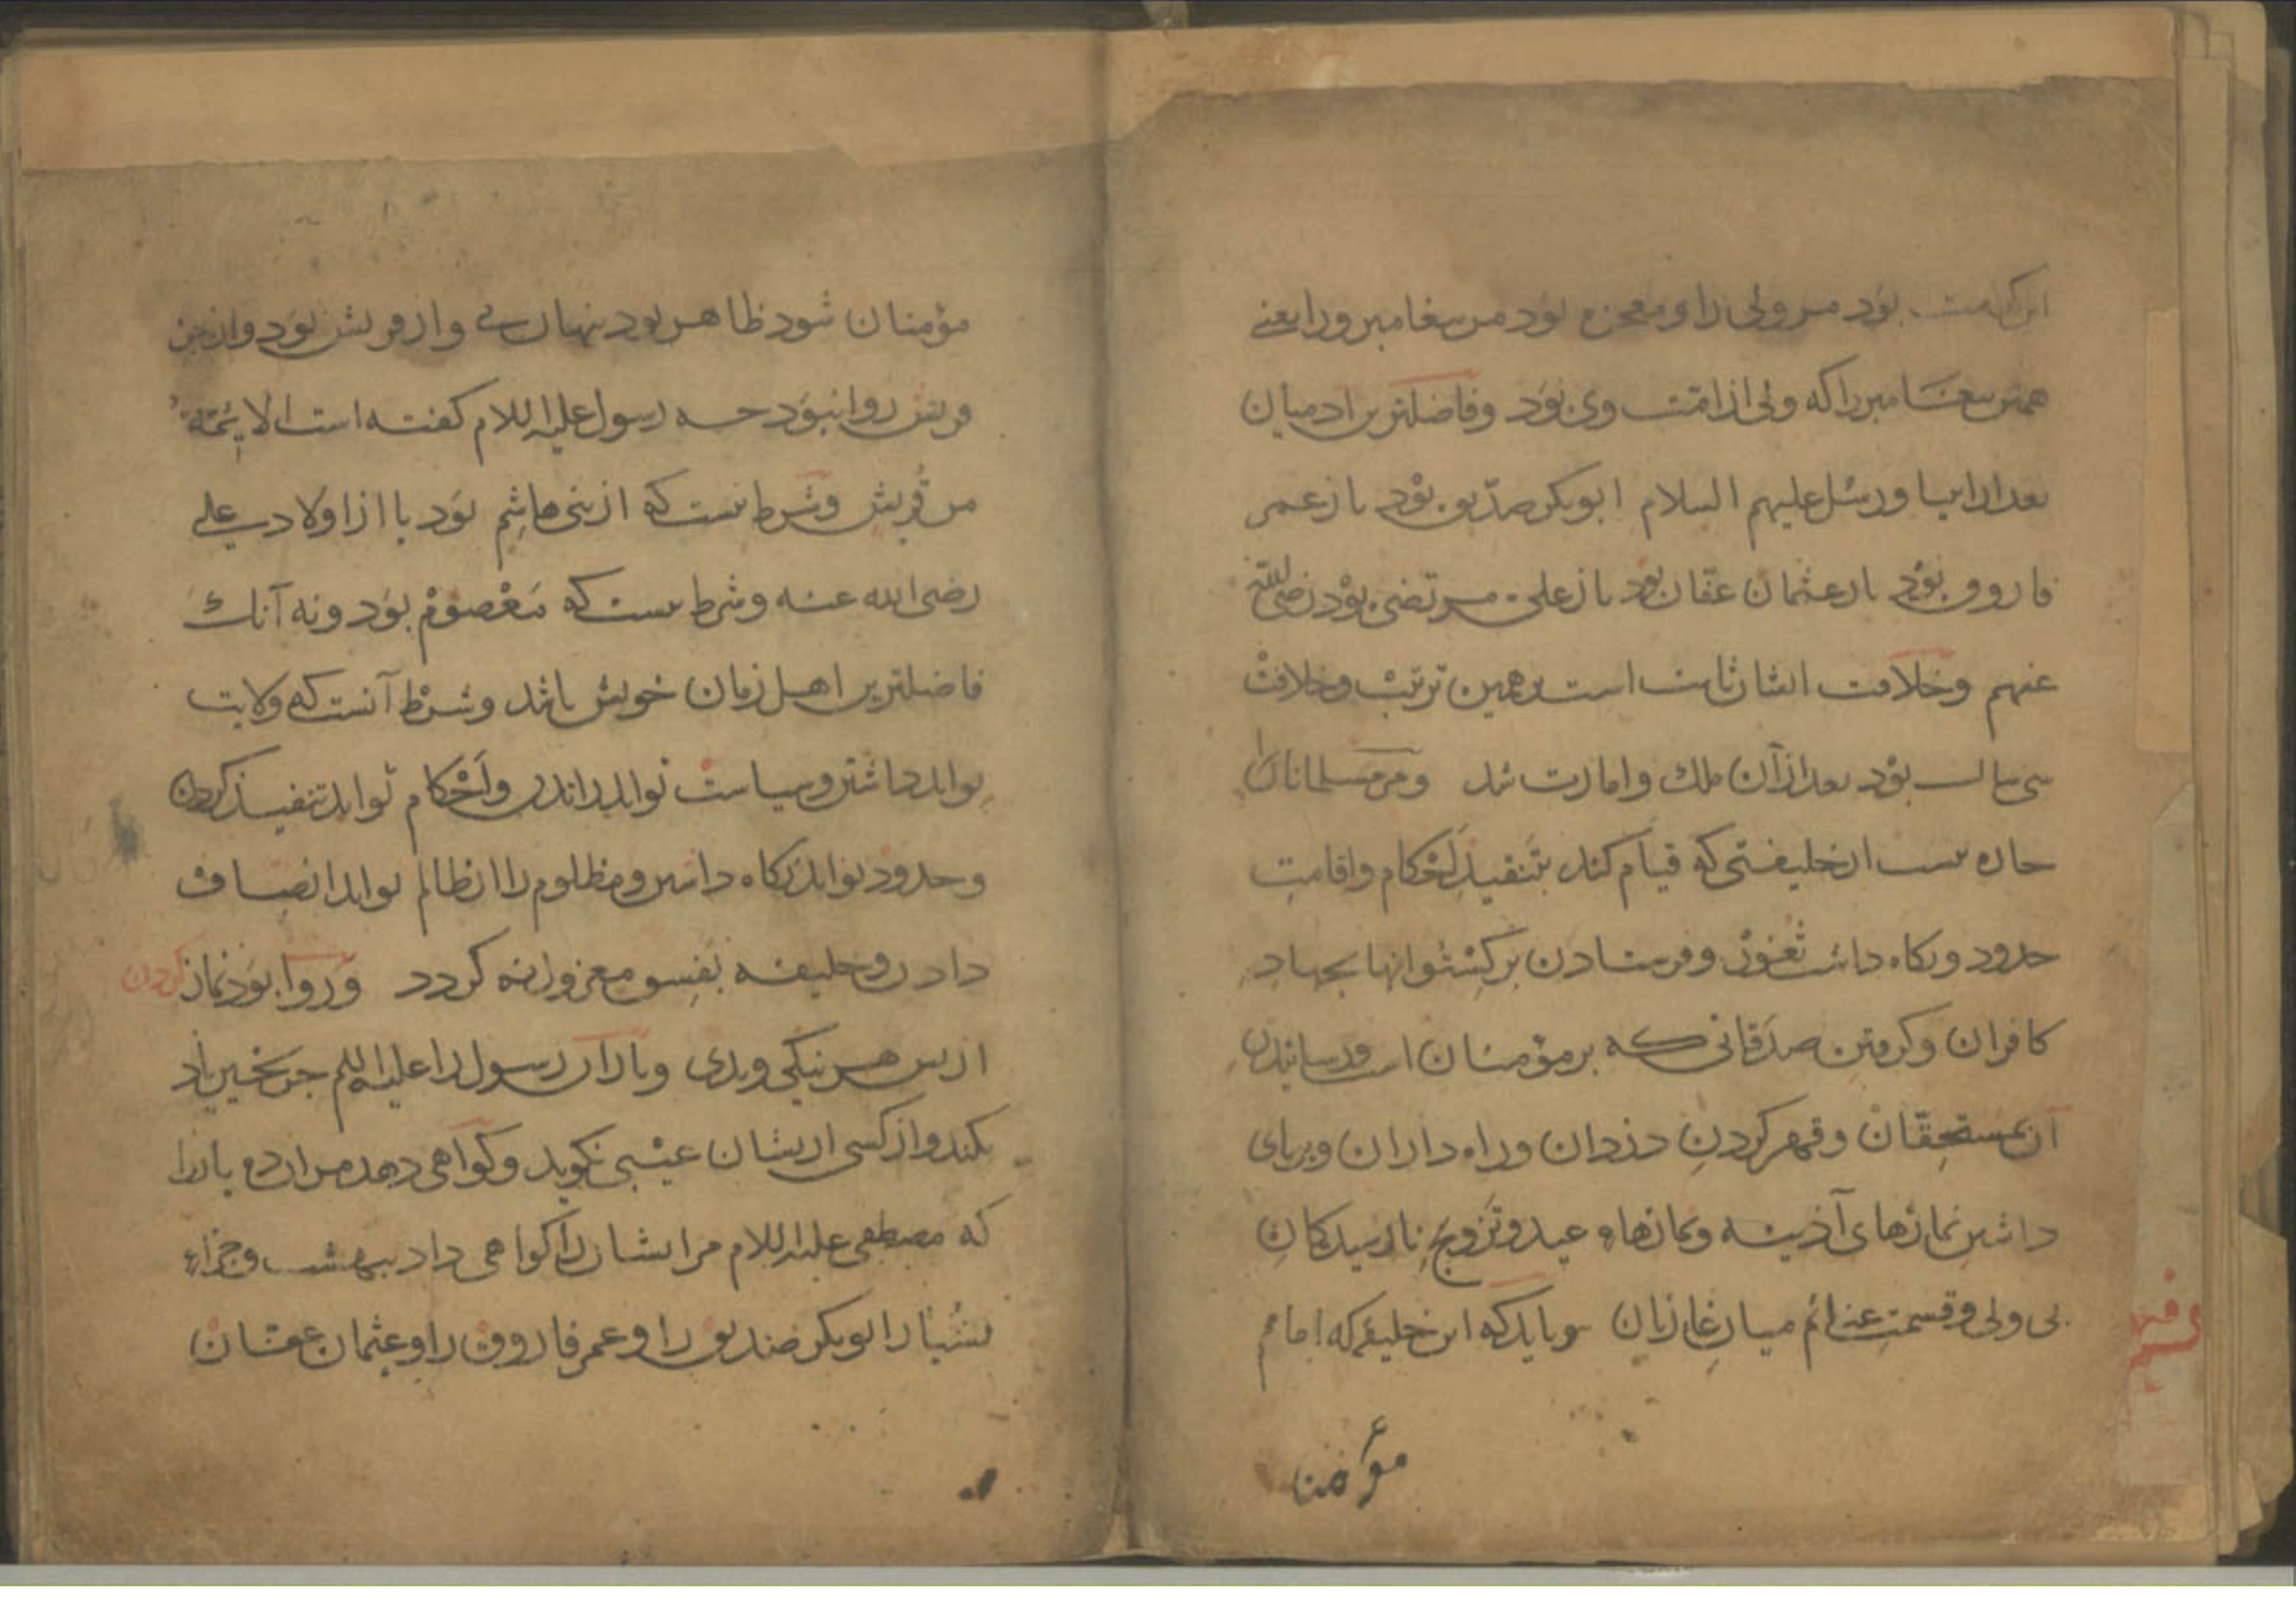 این کرامت بود مر ولی را و معجزه بود مر بیغامبر ورا یعنی
همین بیغامبر را که ولی از امت وی بود و فاضلترین ادمیان
بعد از انبیا و رسل علیهم السلام ابوبکر صدیق بود باز عمر
فاروق بود باز عثمان عفان بود باز علی مرتضی بود رضی الله
عنهم و خلافت ایشان ثابت است برهمین ترتیب و خلافت
سی سال بود بعد از آن ملک و امارت شد و مر مسلمانان را
جاره نیست از خلیفتی که قیام کند بتنفیذ احکام و اقامت
حدود و نکاه داشت ثغور و فرستادن برکشتوانها بجهاد
کافران و کرفتن صدقاتی که بر مؤمنان است و رسانیدن
آن بمستحقان و قهر کردن دزدان و راه داران و بربای
داشتن نمازهای آذینه و نمازهاء عید و تزویج نارسیدکان
بی ولی و قسمت غنائم میان غازیان و باید که این خلیفه که امام
مؤمنا
مؤمنان شود ظاهر بود نهان نی و از قریش بود و از جز
قریش روا نبود جه رسول علیه السلام کفته است الائمة
من قریش و شرط نیست که از بنی هاشم بود یا از اولاد علی
رضی الله عنه و شرط نیست که معصوم بود و نه آنک
فاضلترین اهل زمان خویش باشد و شرط آنست که ولایت
تواند داشتن و سیاست تواند راندن و احکام تواند تنفیذ کردن
و حدود تواند نکاه داشتن و مظلوم را از ظالم تواند انصاف
دادن و خلیفه بفسق معزول نه کردد و روا بود نماز کردن
از بس هر نیکی و بدی و یاران رسول را علیه السلام جز بخیر یاد
نکند و از کسی از یشان عیبی نکوید و کواهی دهد مر ان ده یار را
که مصطفی علیه السلام مرایشان را کواهی داد ببهشت و جزاء
بشیار ابوبکر صدیق را و عمر فاروق را و عثمان عفان